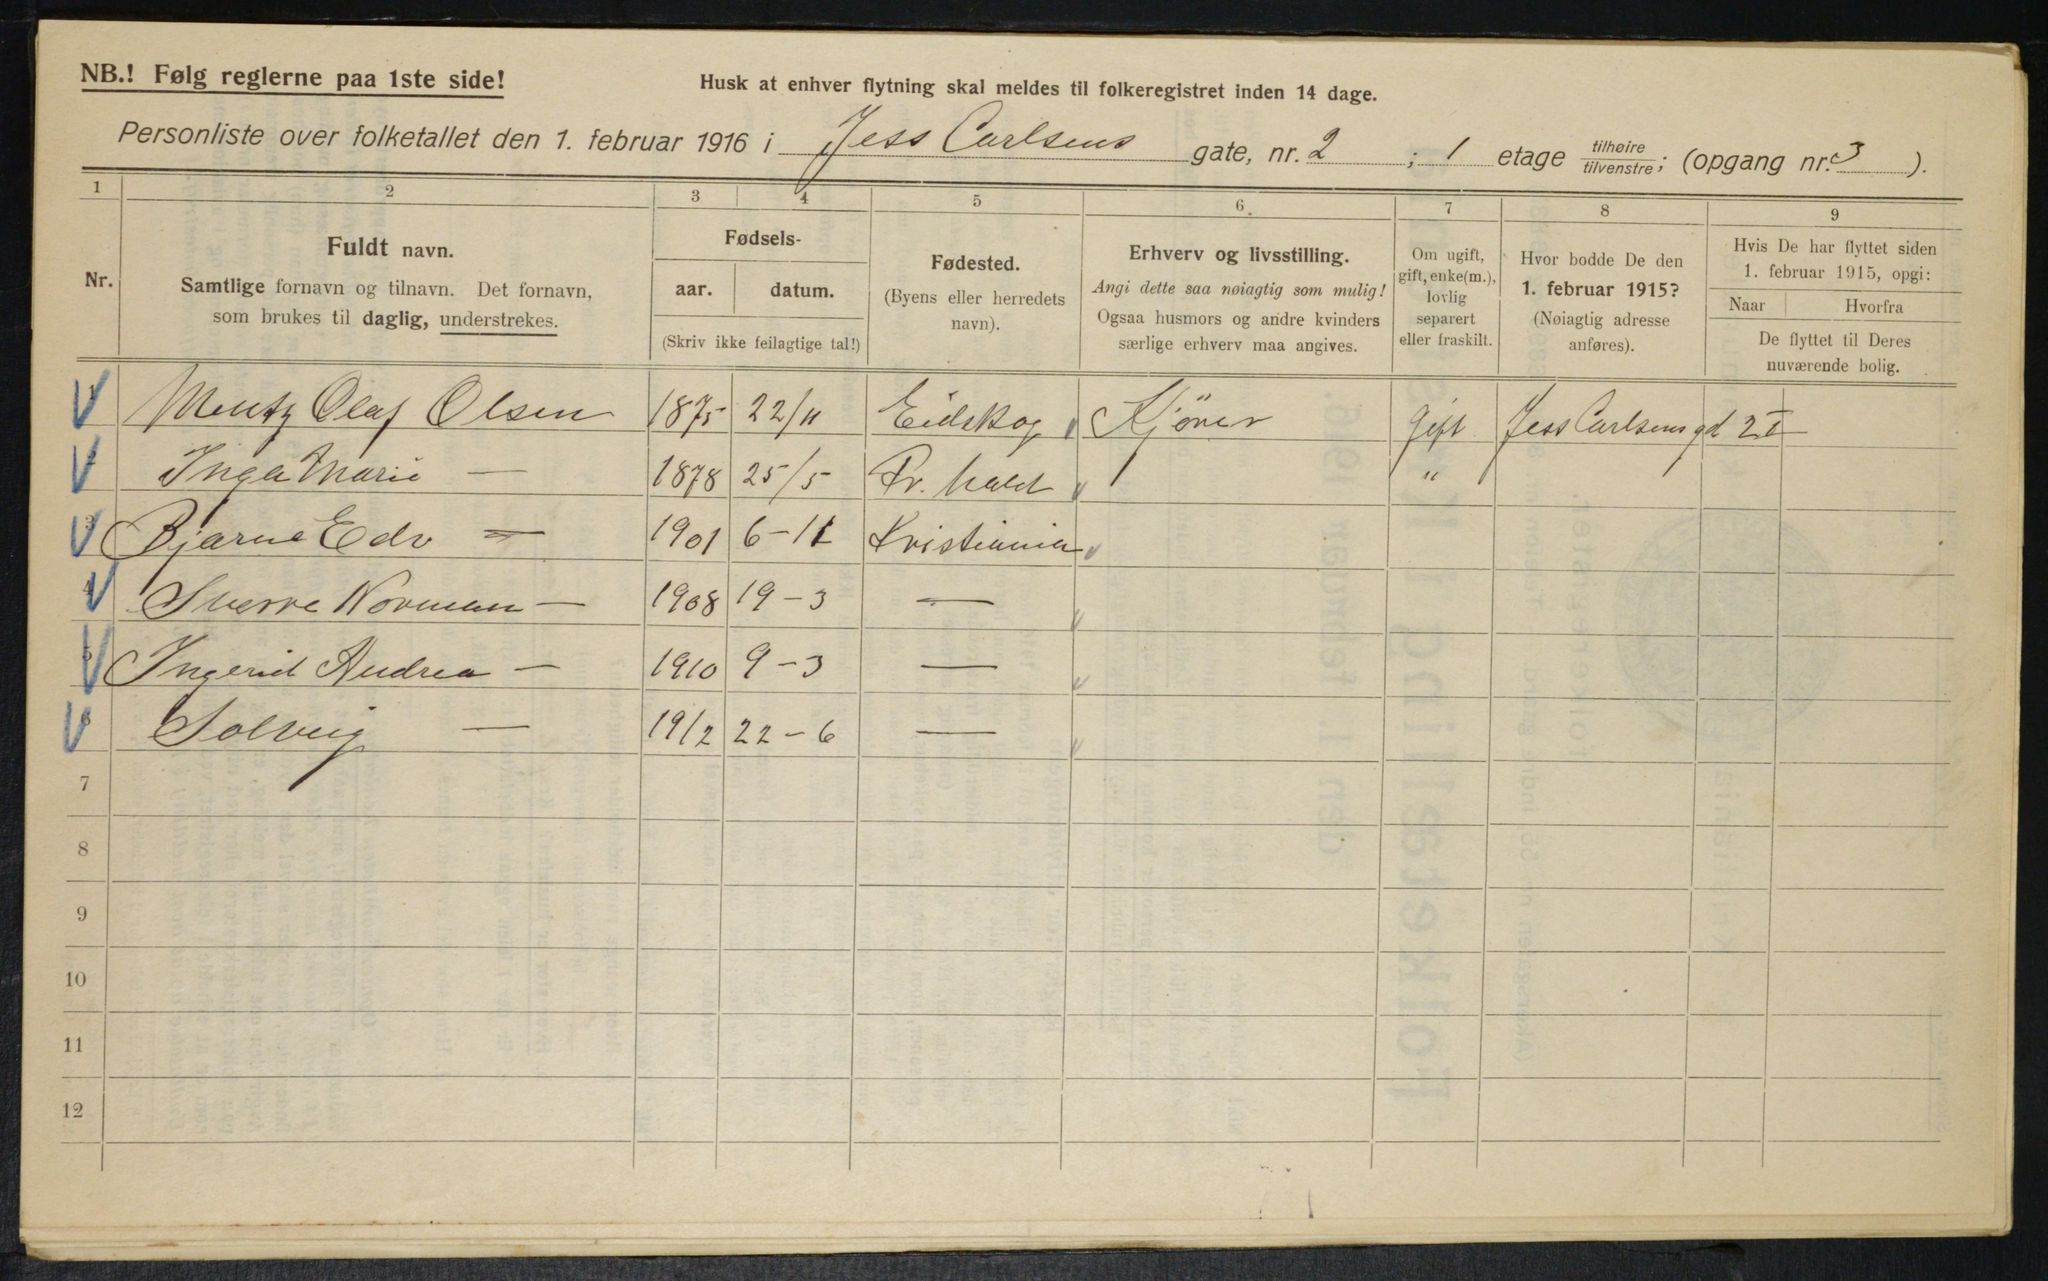 NB.! Følg reglerne paa 1ste side!
Husk at enhver flytning skal meldes til folkeregistret inden 14 dage.
Personliste over folketallet den 1. februar 1916 i Jess Carlsens gate, nr. 2 ; 1 etage tilhøire tilvenstre; (opgang nr. 3 ).
1 2 3 4 5 6. 7 8 9
Nr.
Fuldt navn.
Samtlige fornavn og tilnavn. Det fornavn,
som brukes til daglig, understrekes.
Fødsels-
aar. datum.
(Skriv ikke feilagtige tal!)
Fødested.
(Byens eller herredets
navn).
Erhverv og livsstilling.
Angi dette saa nøiagtig som mulig!
Ogsaa husmors og andre kvinders
særlige erhverv maa angives.
Om ugift,
gift, enke(m.),
lovlig
separert
eller fraskilt.
Hvor bodde De den
1. februar 1915?
(Nøiagtig adresse
anføres).
Hvis De har flyttet siden
1. februar 1915, opgi:
Naar Hvorfra
De flyttet til Deres
nuværende bolig.
1 Mentz Olaf Olsen 1875 22/11 Eidskog Kjører gift Jess Carlsens gd 2 I
2 Inga Marie — 1878 25/5 Fr. hald "
3 Bjarne Edv — 1901 6-11 Kristiania
4 Sverre Norman — 1908 19-3 —
5 Ingerid Andrea — 1910 9-3 —
6 Solveig — 1912 22-6 —
7
8
9
10
11
12